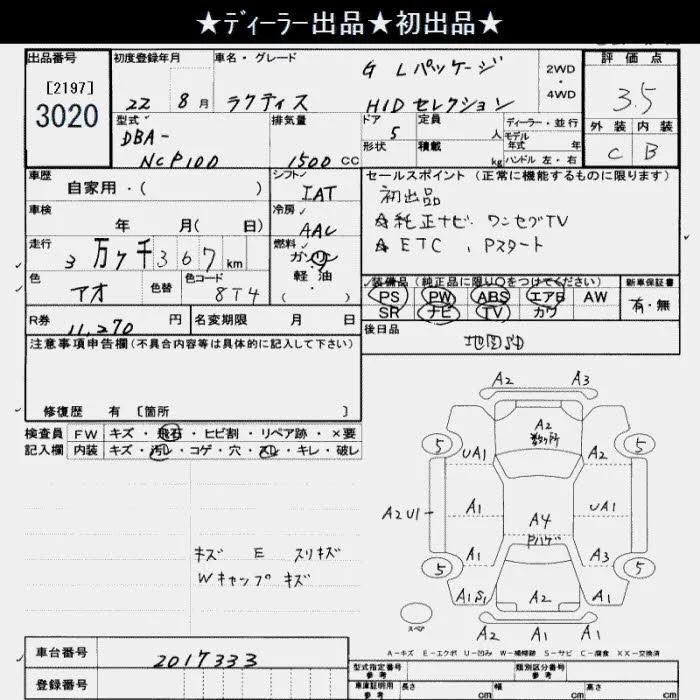 ★ディーラー出品★初出品★
出品番号
[2197]
3020
初度登録年月
22 8月
車名・グレード
ラクティス
G Lパッケージ
HIDセレクション
2WD
・
4WD
評価点
3.5
外装 内装
C B
型式
DBA-
NCP100
排気量
1500 CC
ドア
5
定員
人
形状
積載
kg
ディーラー・並行
モデル
年式 年
ハンドル 左・右
車歴
自家用・( )
シフト
IAT
車検
年 月( 日)
冷房
AAC
走行
3万7千367km
燃料
ガソリン
軽油
( ・ )
色
アオ
色替
色コード
8T4
R券
11,270 円
名変期限 月 日
セールスポイント (正常に機能するものに限ります)
初出品
純正ナビ ワンセグTV
ETC , Pスタート
装備品(純正品に限り○をつけてください)
PS PW ABS エアB AW
SR ナビ TV カワ
新車保証書
有・無
後日品
地図SD
注意事項申告欄(不具合内容等は具体的に記入して下さい)
修復歴 有 [箇所 ]
検査員
記入欄
FW キズ・飛石・ヒビ割・リペア跡・×要
内装 キズ・汚レ・コゲ・穴・スレ・キレ・破レ
キズ E スリキズ
Wキャップ キズ
A2 A3
A2
数ヶ所
5 UA1 A2 5
A2U1 A1 UA1
A4
Pハゲ
5 A1 A3 5
A1S1 A2 A1
A2 A1 A1
スペア
A-キズ E-エクボ U-凹み W-補修跡 S-サビ C-腐食 XX-交換済
車台番号
2017333
登録番号
型式指定番号
参考
類別区分番号
参考
車庫証明用
参考
長さ cm 幅 cm 高さ cm